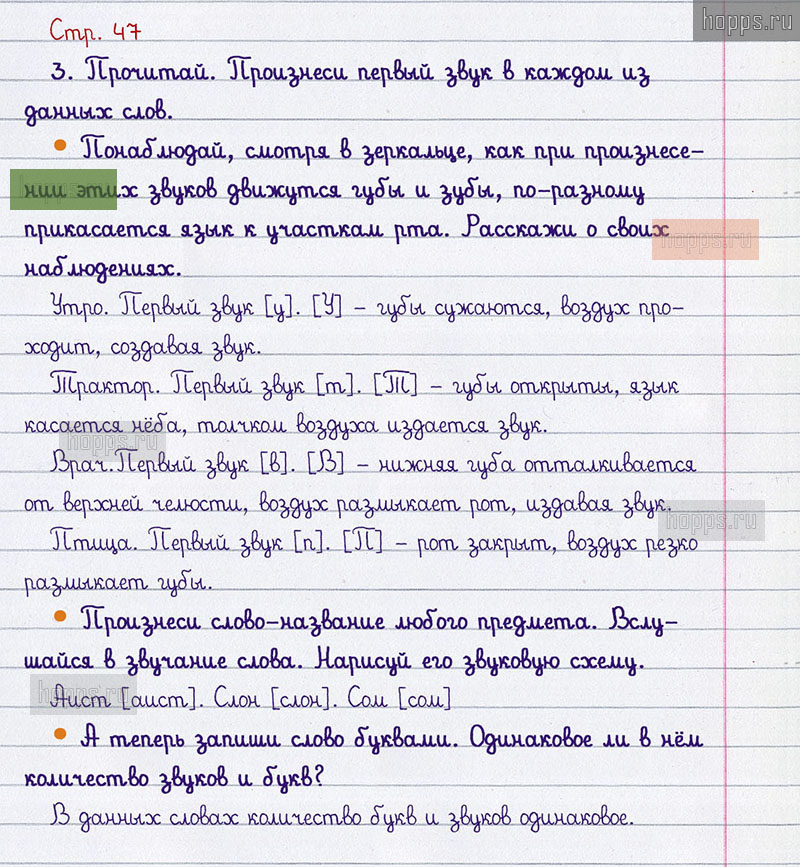 hopps.ru
Стр. 47
3. Прочитай. Произнеси первый звук в каждом из
данных слов.
• Понаблюдай, смотря в зеркальце, как при произнесе-
нии этих звуков движутся губы и зубы, по-разному
прикасается язык к участкам рта. Расскажи о своих
hopps.ru
наблюдениях.
Утро. Первый звук [у]. [У] – губы сужаются, воздух про-
ходит, создавая звук.
Трактор. Первый звук [т]. [Т] – губы открыты, язык
касается нёба, толчком воздуха издается звук.
hopps.ru
Врач.Первый звук [в]. [В] – нижняя губа отталкивается
от верхней челюсти, воздух размыкает рот, издавая звук.
hopps.ru
Птица. Первый звук [п]. [П] – рот закрыт, воздух резко
размыкает губы.
• Произнеси слово-название любого предмета. Вслу-
шайся в звучание слова. Нарисуй его звуковую схему.
hopps.ru
Аист [аист]. Слон [слон]. Сом [сом]
• А теперь запиши слово буквами. Одинаковое ли в нём
количество звуков и букв?
В данных словах количество букв и звуков одинаковое.